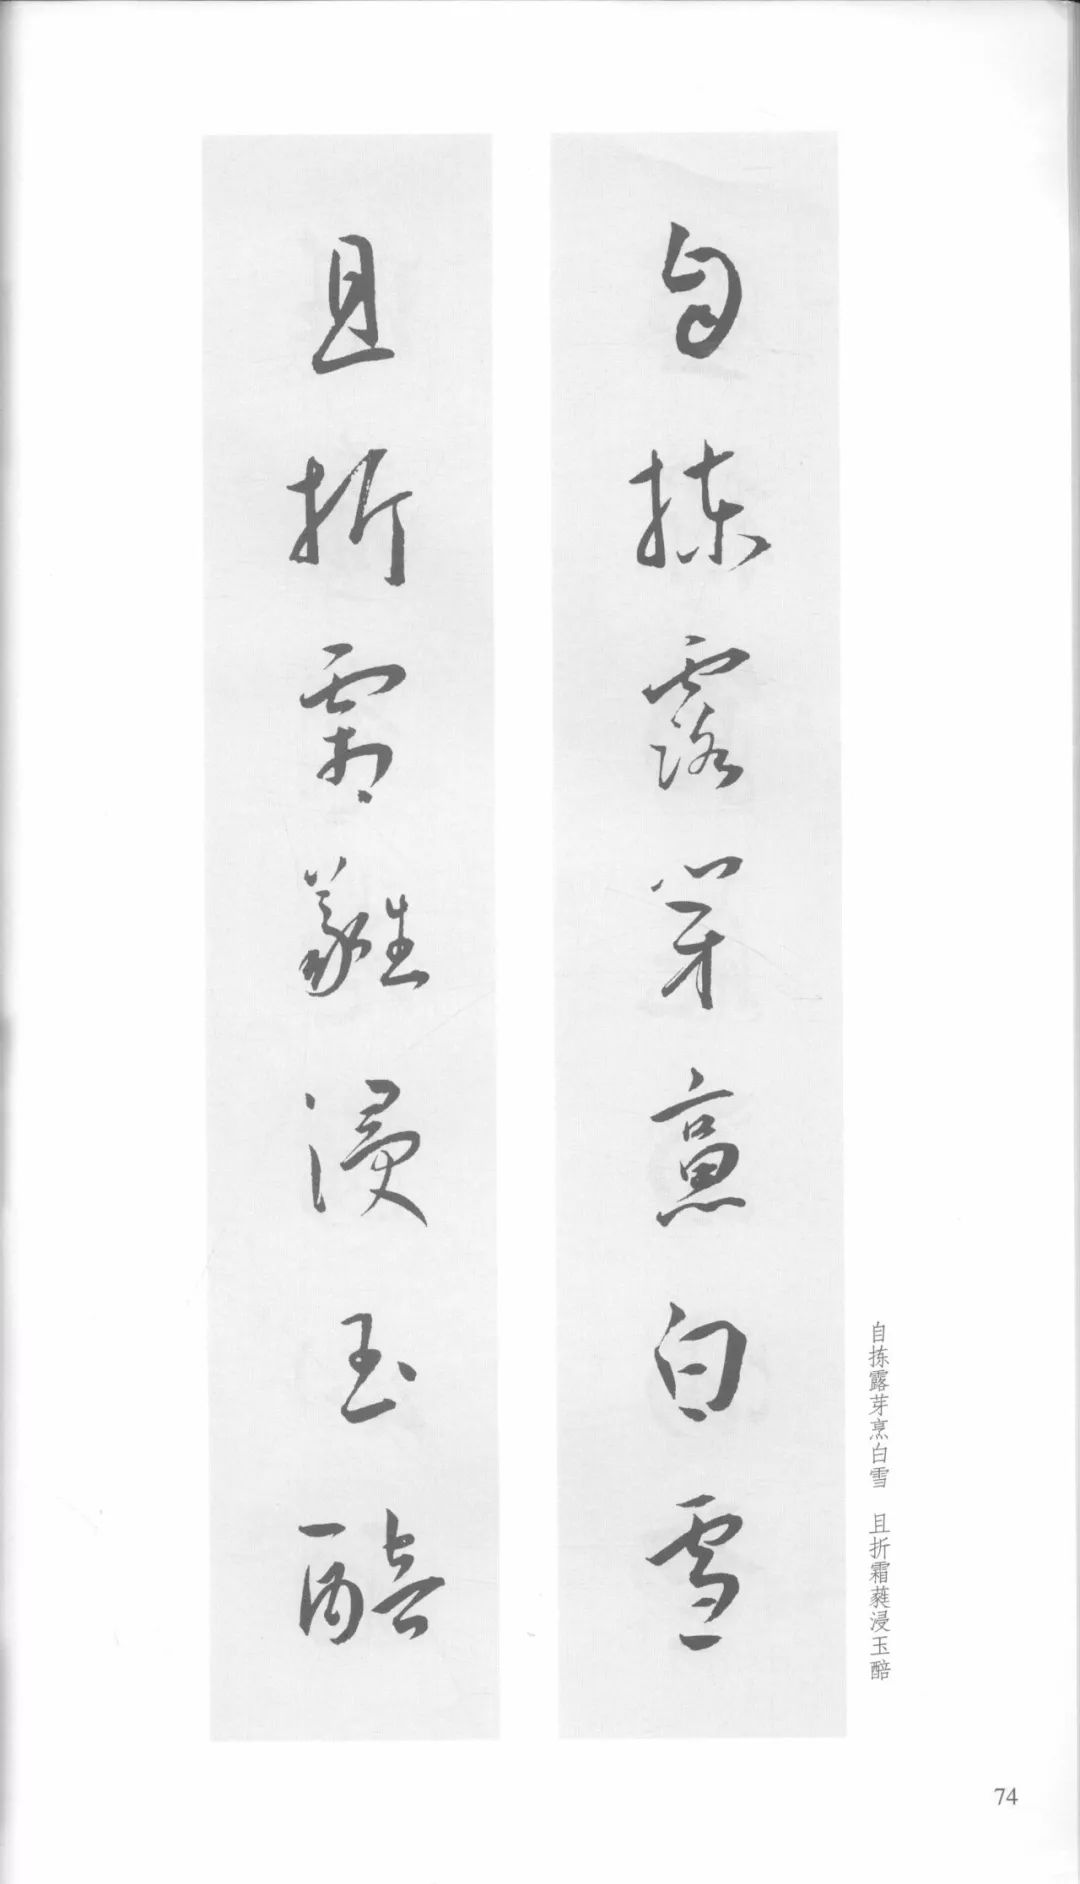 自拣露芽烹白雪
且折霜蕤浸玉醅
自拣露芽烹白雪　且折霜蕤浸玉醅
74